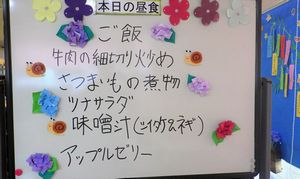 本日の昼食
ご飯
牛肉の細切り炒め
さつまいもの煮物
ツナサラダ
味噌汁(シイタケ、ネギ)
アップルゼリー